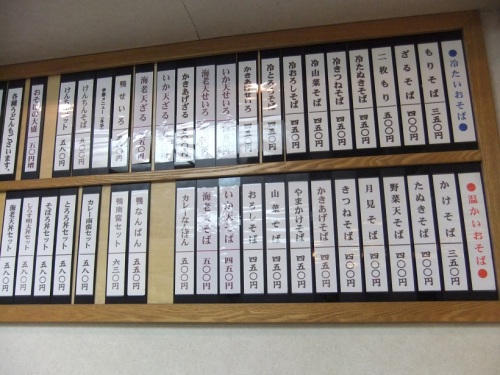 ●冷たいおそば●
もりそば 三五〇円
ざるそば 四五〇円
二枚もり 五〇〇円
冷たぬきそば 四五〇円
冷きつねそば 四五〇円
冷山菜そば 四五〇円
冷おろしそば 四五〇円
冷とろろそば 四五〇円
かきあげせいろ
いか天せいろ
海老天せいろ
かきあげざる
いか天ざる
海老天ざる
鴨せいろ
けんちんそば
けんちんセット 五八〇円
おそばの大盛 一五〇円増
各種うどんもございます。
●温かいおそば●
かけそば 三五〇円
たぬきそば 四五〇円
野菜天そば 四五〇円
月見そば 四五〇円
きつねそば 四五〇円
かきあげそば 四五〇円
やまかけそば 四五〇円
山菜そば 四五〇円
おろしそば 四五〇円
いか天そば 四五〇円
海老天そば 五〇〇円
カレーなんばん 五〇〇円
鴨なんばん 五五〇円
鴨南蛮セット 六三〇円
カレー南蛮セット 五八〇円
とろろ丼セット 五八〇円
そぼろ丼セット 五八〇円
しらす明太丼セット 五八〇円
海老天丼セット 五八〇円